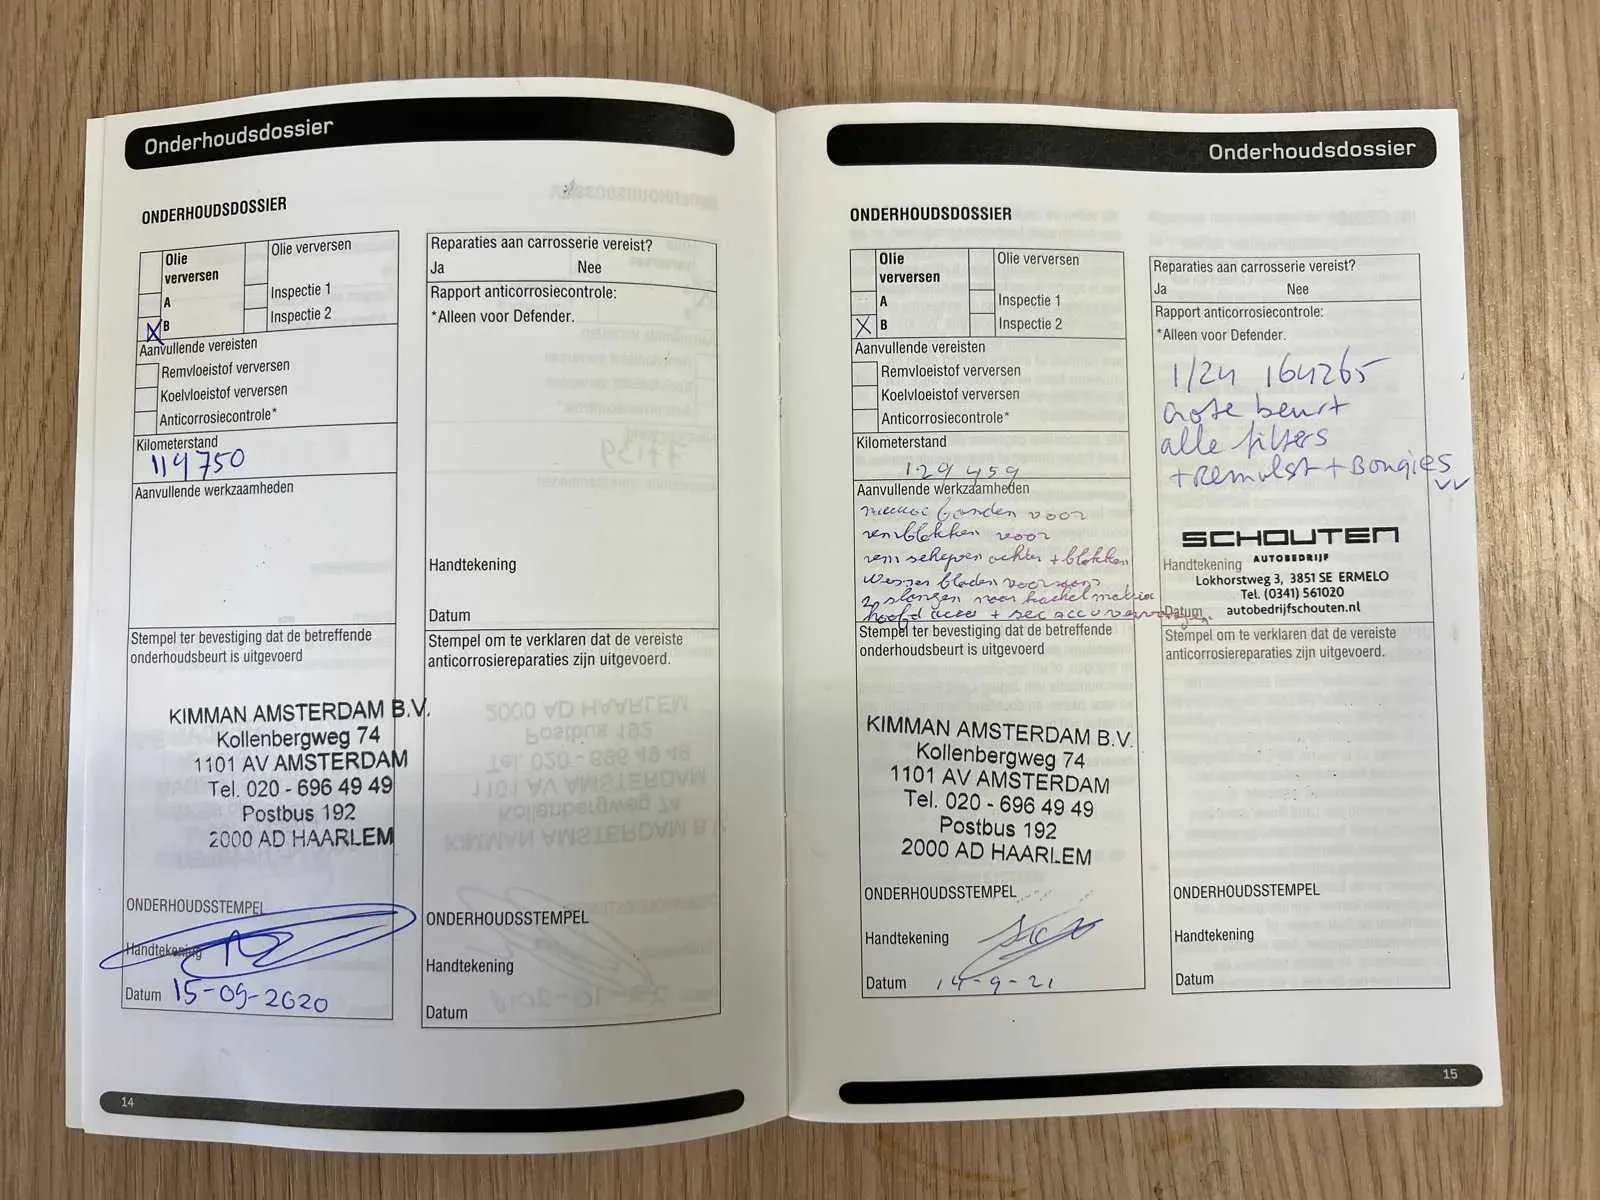 Onderhoudsdossier
ONDERHOUDSDOSSIER
Olie
verversen
A
X B
Olie verversen
Inspectie 1
Inspectie 2
Aanvullende vereisten
Remvloeistof verversen
Koelvloeistof verversen
Anticorrosiecontrole*
Kilometerstand
114750
Aanvullende werkzaamheden
Stempel ter bevestiging dat de betreffende
onderhoudsbeurt is uitgevoerd
KIMMAN AMSTERDAM B.V.
Kollenbergweg 74
1101 AV AMSTERDAM
Tel. 020 - 696 49 49
Postbus 192
2000 AD HAARLEM
ONDERHOUDSSTEMPEL
Handtekening
Datum 15-09-2020
Reparaties aan carrosserie vereist?
Ja Nee
Rapport anticorrosiecontrole:
*Alleen voor Defender.
Handtekening
Datum
Stempel om te verklaren dat de vereiste
anticorrosiereparaties zijn uitgevoerd.
ONDERHOUDSSTEMPEL
Handtekening
Datum
14
Onderhoudsdossier
ONDERHOUDSDOSSIER
Olie
verversen
A
X B
Olie verversen
Inspectie 1
Inspectie 2
Aanvullende vereisten
Remvloeistof verversen
Koelvloeistof verversen
Anticorrosiecontrole*
Kilometerstand
129 459
Aanvullende werkzaamheden
nieuwe banden voor
remblokken voor
rem schijven achter + blokken
wisser bladen voor
2 slangen voor
hoofd accu + sec accu vervangen.
Stempel ter bevestiging dat de betreffende
onderhoudsbeurt is uitgevoerd
KIMMAN AMSTERDAM B.V.
Kollenbergweg 74
1101 AV AMSTERDAM
Tel. 020 - 696 49 49
Postbus 192
2000 AD HAARLEM
ONDERHOUDSSTEMPEL
Handtekening
Datum 14-9-21
Reparaties aan carrosserie vereist?
Ja Nee
Rapport anticorrosiecontrole:
*Alleen voor Defender.
1/24 164265
Grote beurt
alle filters
+ Remvlst + Bougies
SCHOUTEN
AUTOBEDRIJF
Handtekening
Lokhorstweg 3, 3851 SE ERMELO
Tel. (0341) 561020
Datum autobedrijfschouten.nl
Stempel om te verklaren dat de vereiste
anticorrosiereparaties zijn uitgevoerd.
ONDERHOUDSSTEMPEL
Handtekening
Datum
15